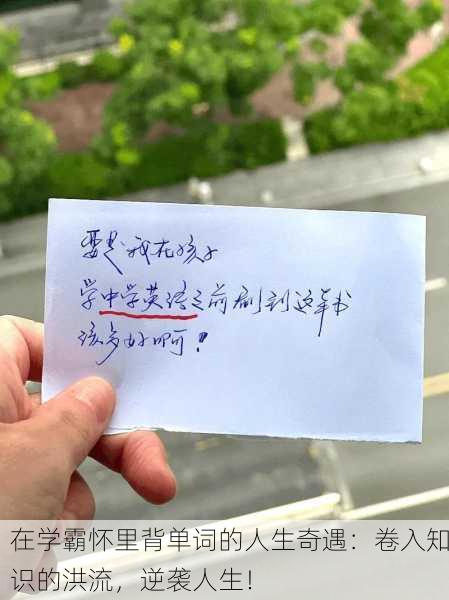 要是我在孩子
学中学英语之前刷到这本书
该多好啊！
在学霸怀里背单词的人生奇遇：卷入知
识的洪流，逆袭人生！